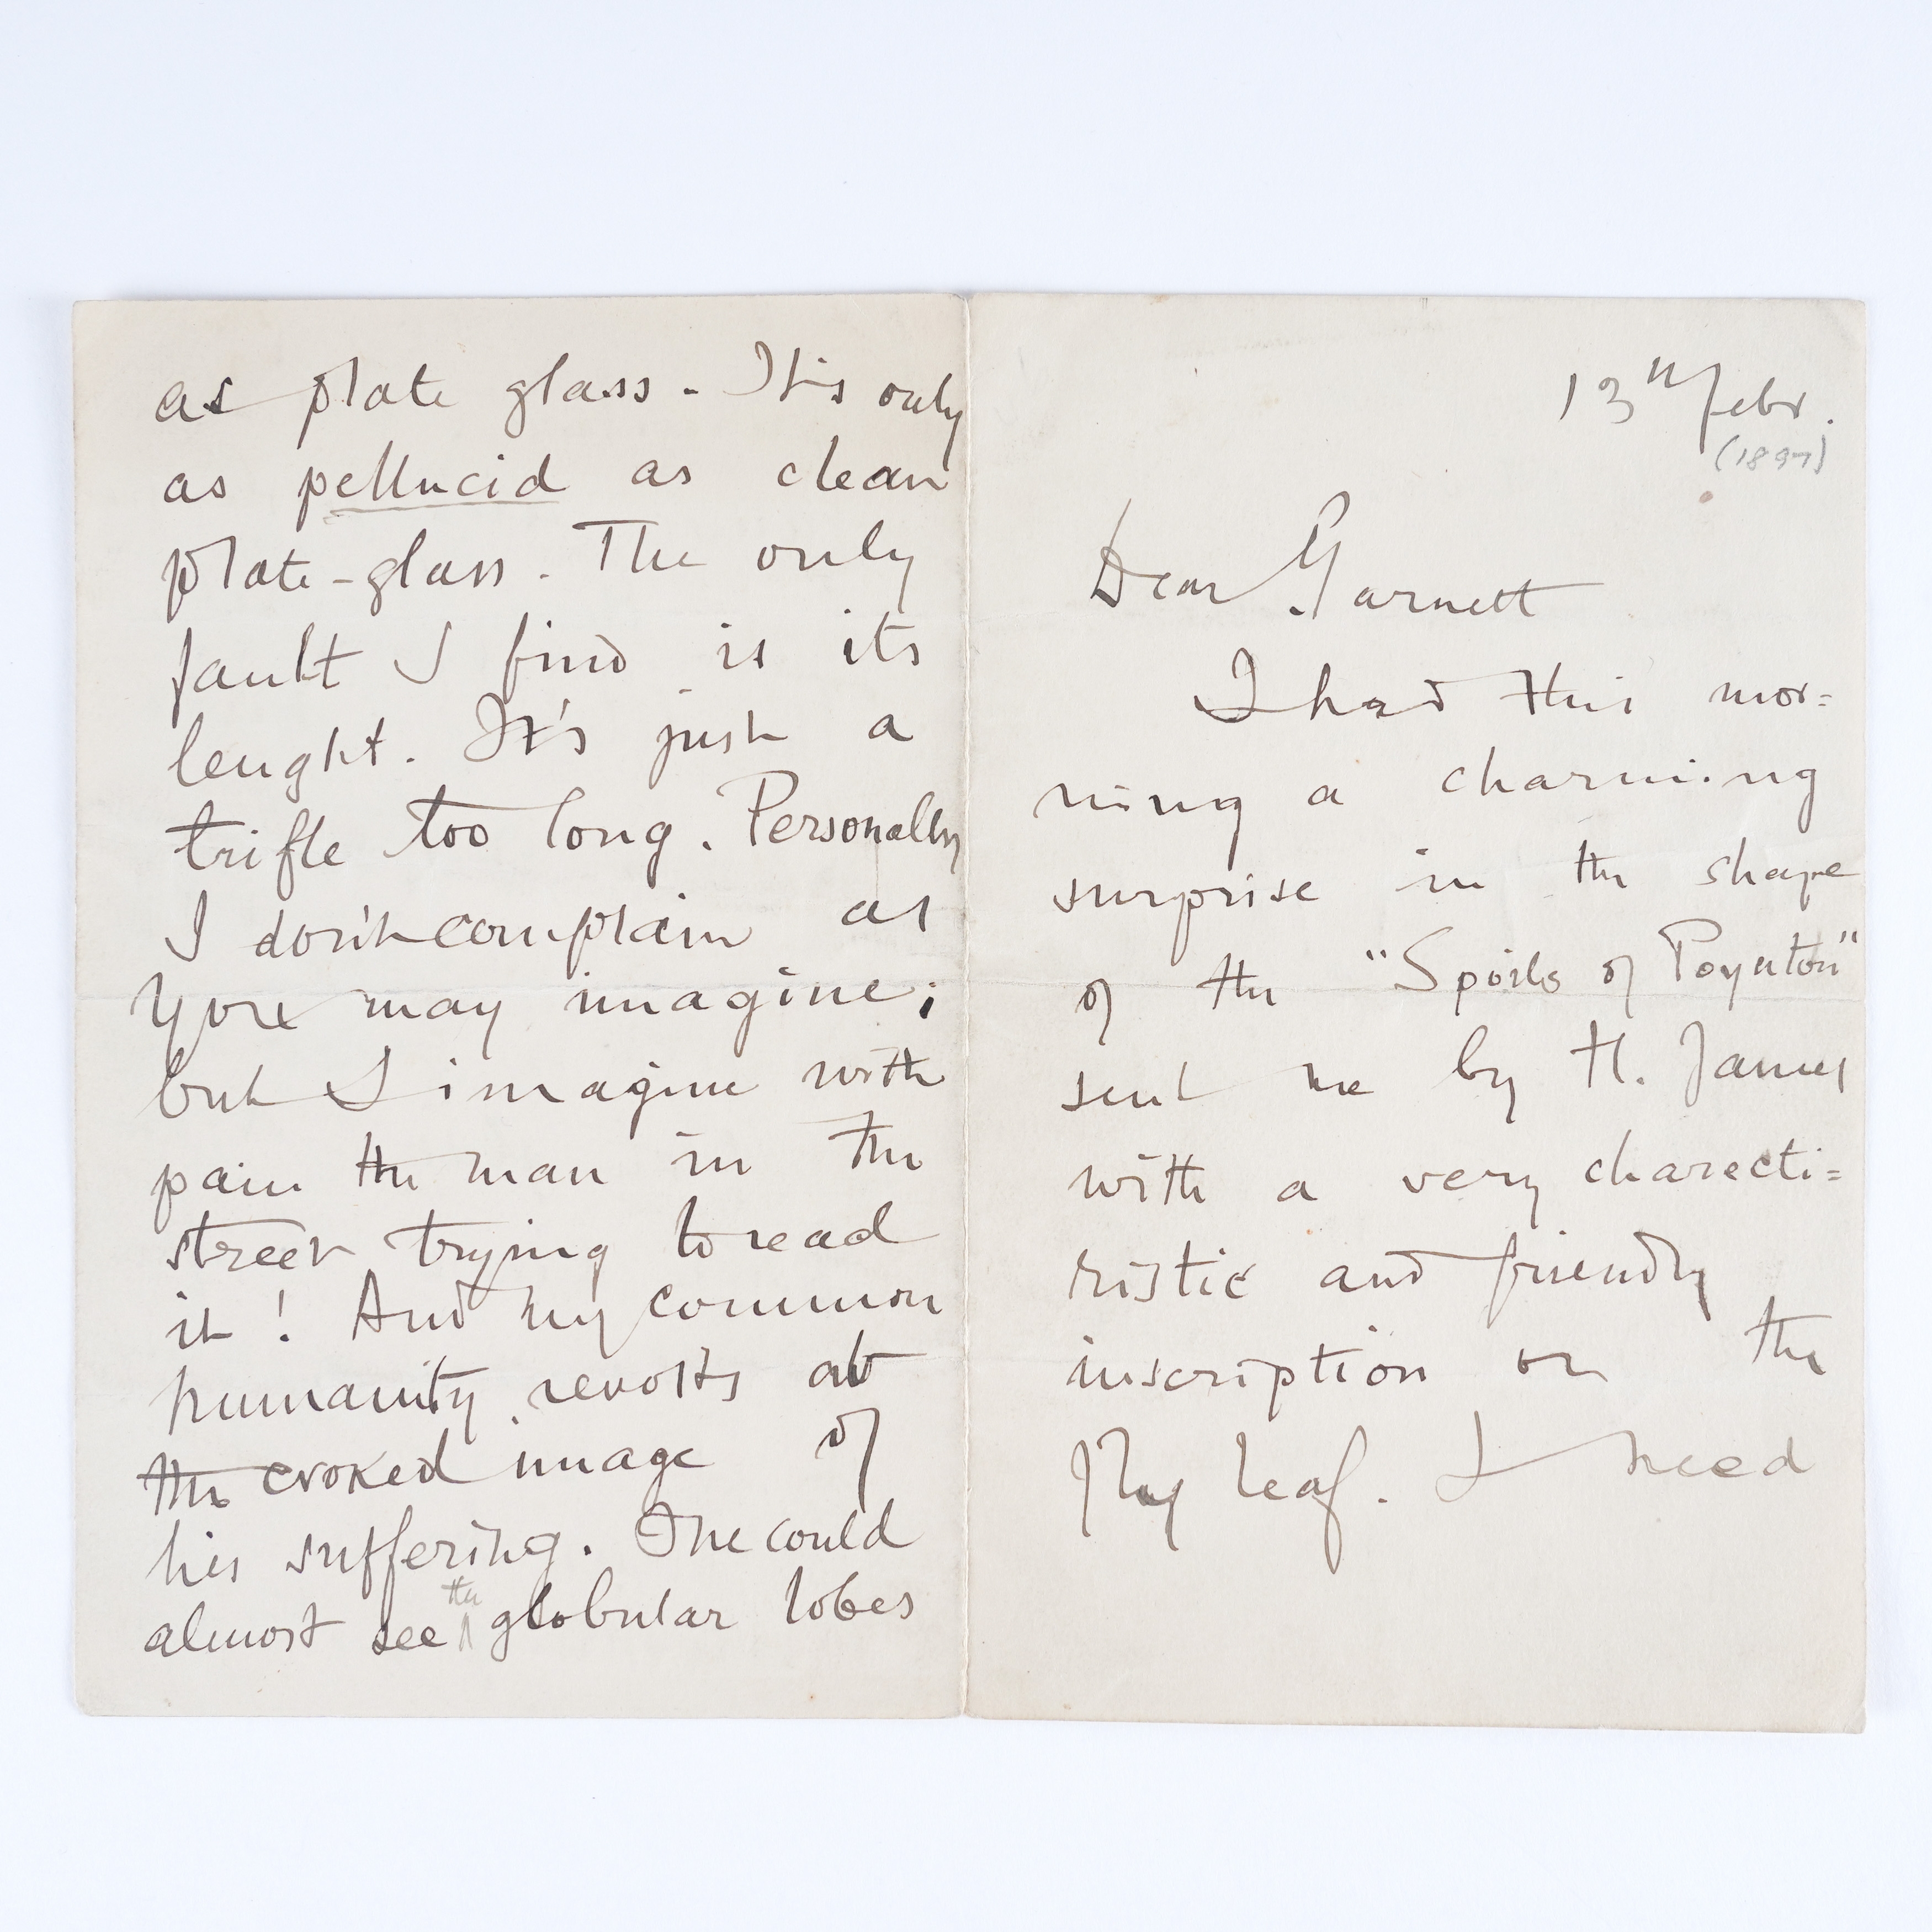 13th Febr.
(1897)
Dear Garnett
I had this mor=
ning a charming
surprise in the shape
of the "Spoils of Poynton"
sent me by H. James
with a very charecti=
ristic and friendly
inscription on the
fly leaf. I need
as plate glass. Itis only
as pellucid as clean
plate-glass. The only
fault I find is its
lenght. It's just a
trifle too long. Personally
I don't complain as
you may imagine;
but I imagine with
pain the man in the
street trying to read
it! And my common
humanity revolts at
the evoked image of
his suffering. One could
almost see the globular lobes